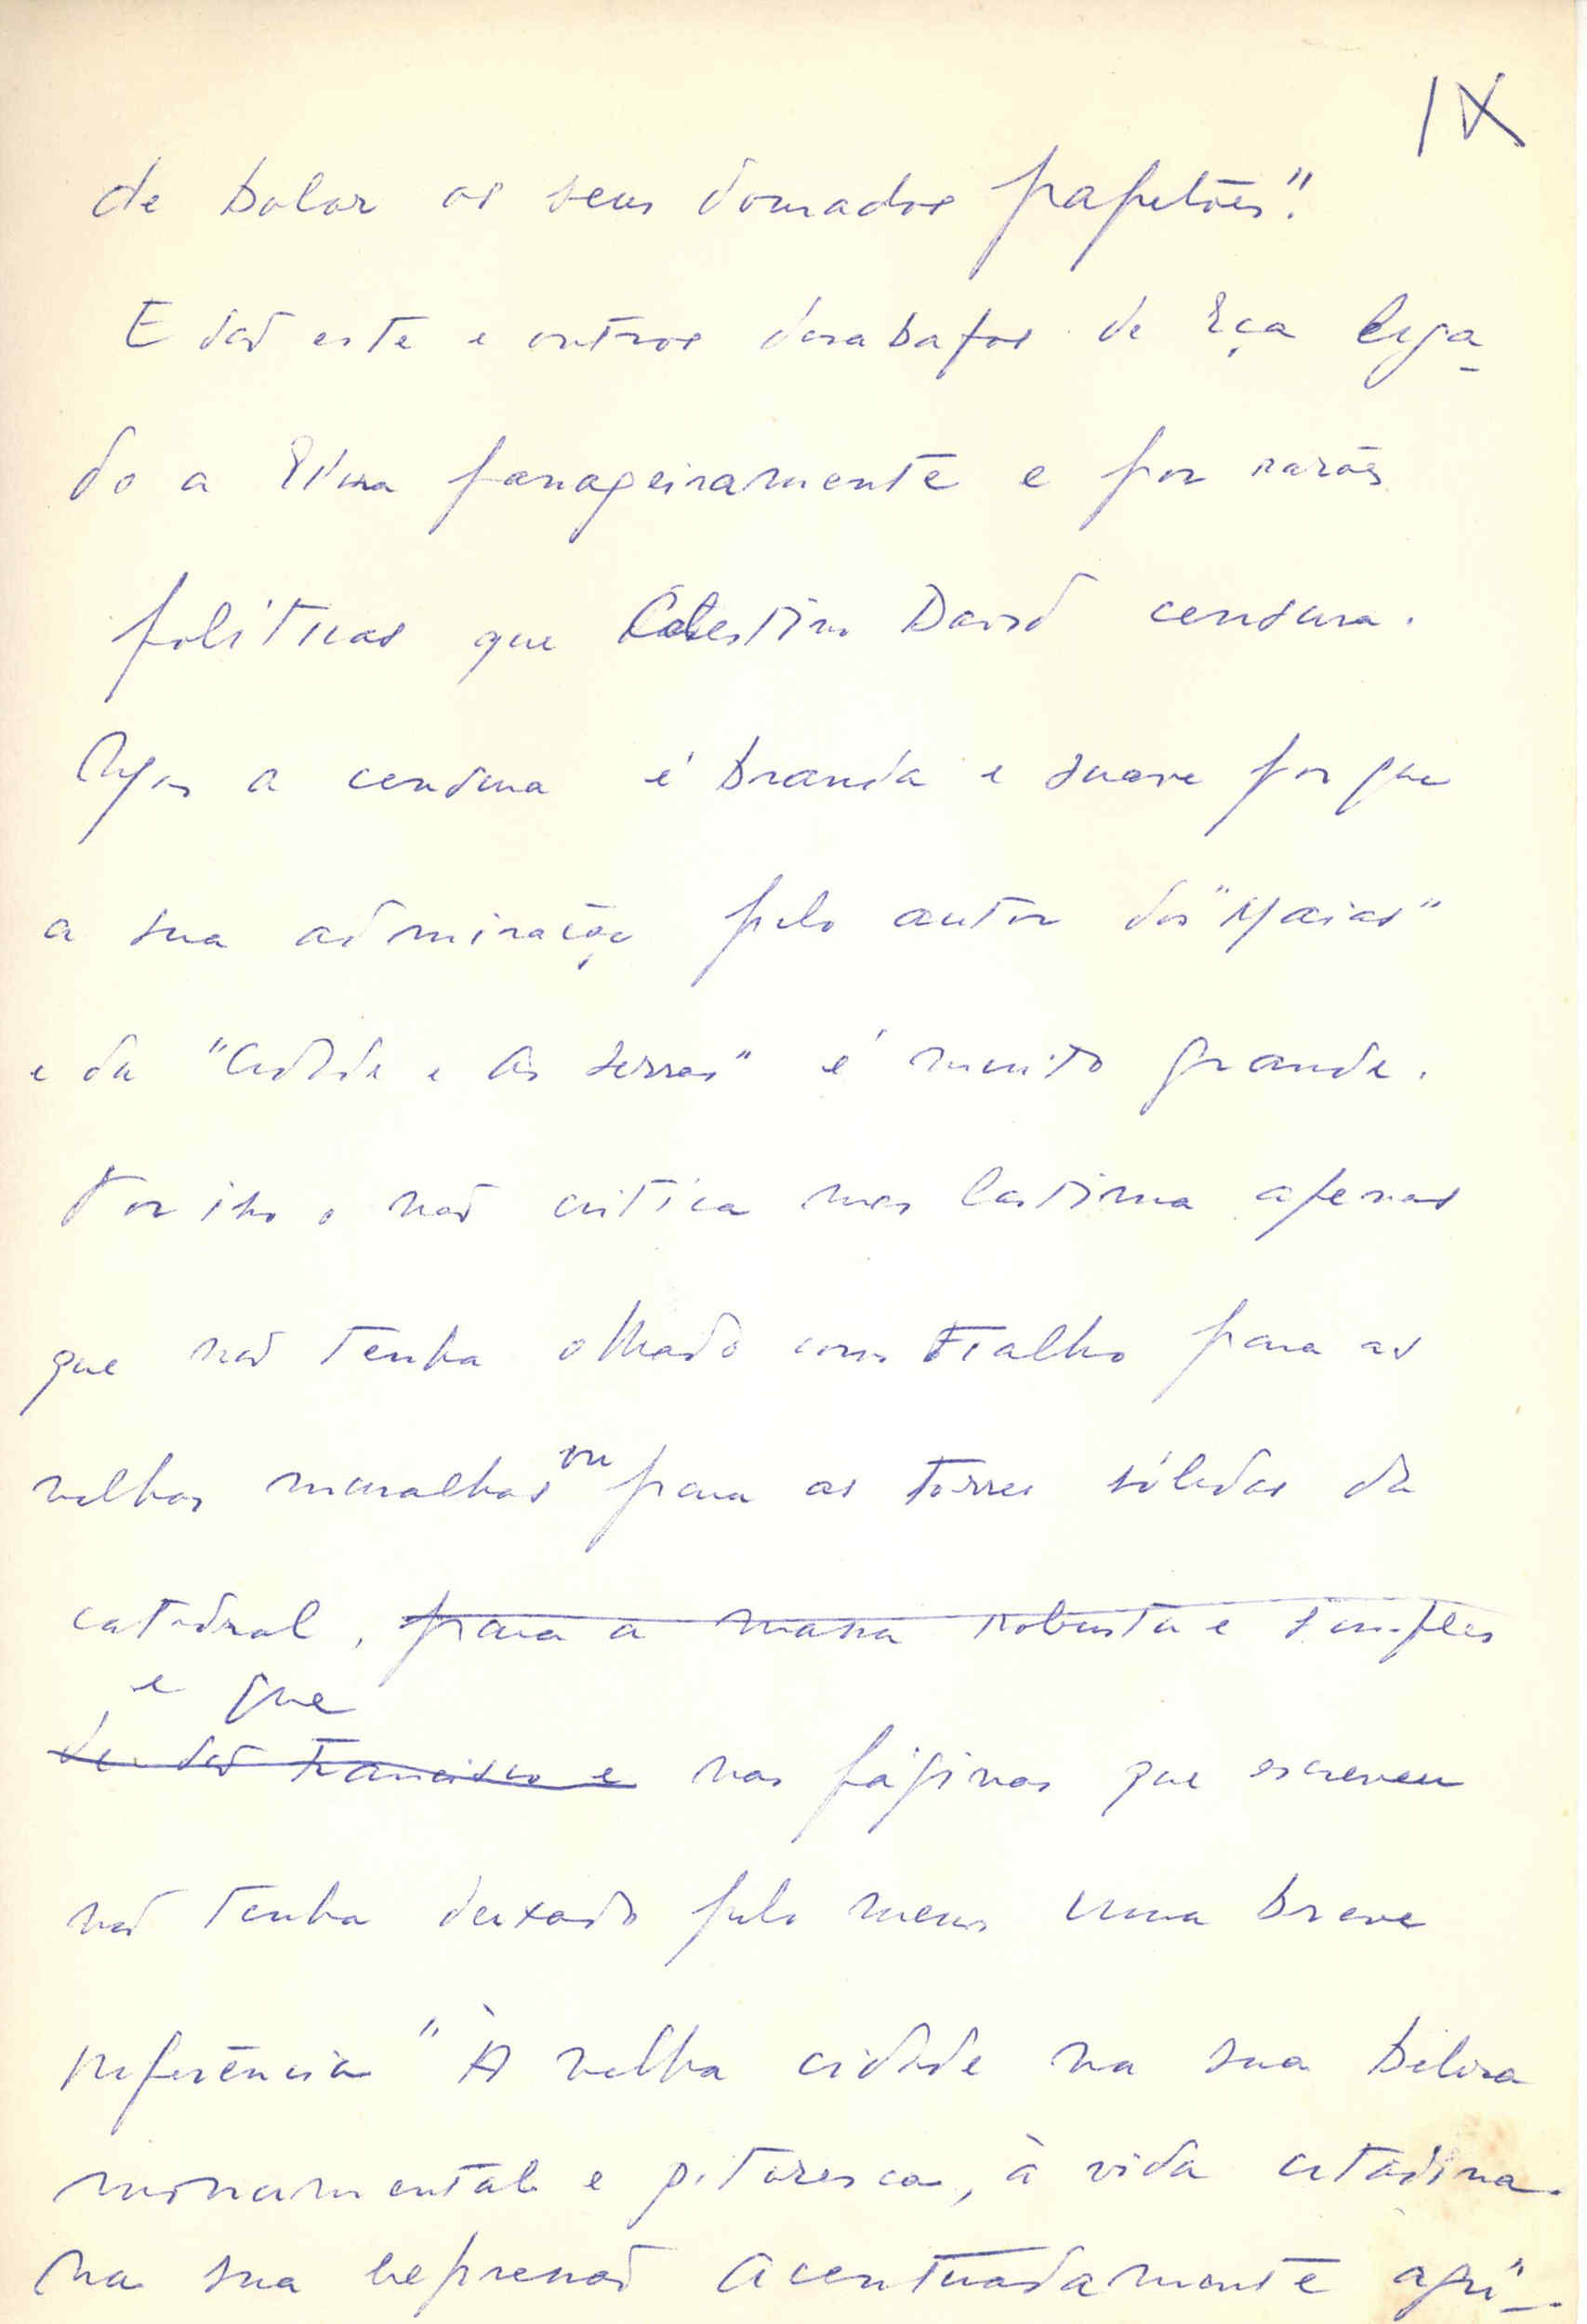 IX
de bolor os seus dourados papelões".
E são este e outros desabafos de Eça liga-
do a Évora passageiramente e por razões
políticas que Celestino David censura.
Mas a censura é branda e suave porque
a sua admiração pelo autor dos "Maias"
e da "Cidade e As Serras" é muito grande.
Por isso o não critica mas lastima apenas
que não tenha olhado como Fialho para as
velhas muralhas ou para as torres sólidas da
catedral, para a massa robusta e simples
e que
de São Francisco e nas páginas que escreveu
não tenha deixado pelo menos uma breve
referência "À velha cidade na sua beleza
monumental e pitoresca, à vida citadina
na sua expressão acentuadamente agrí-